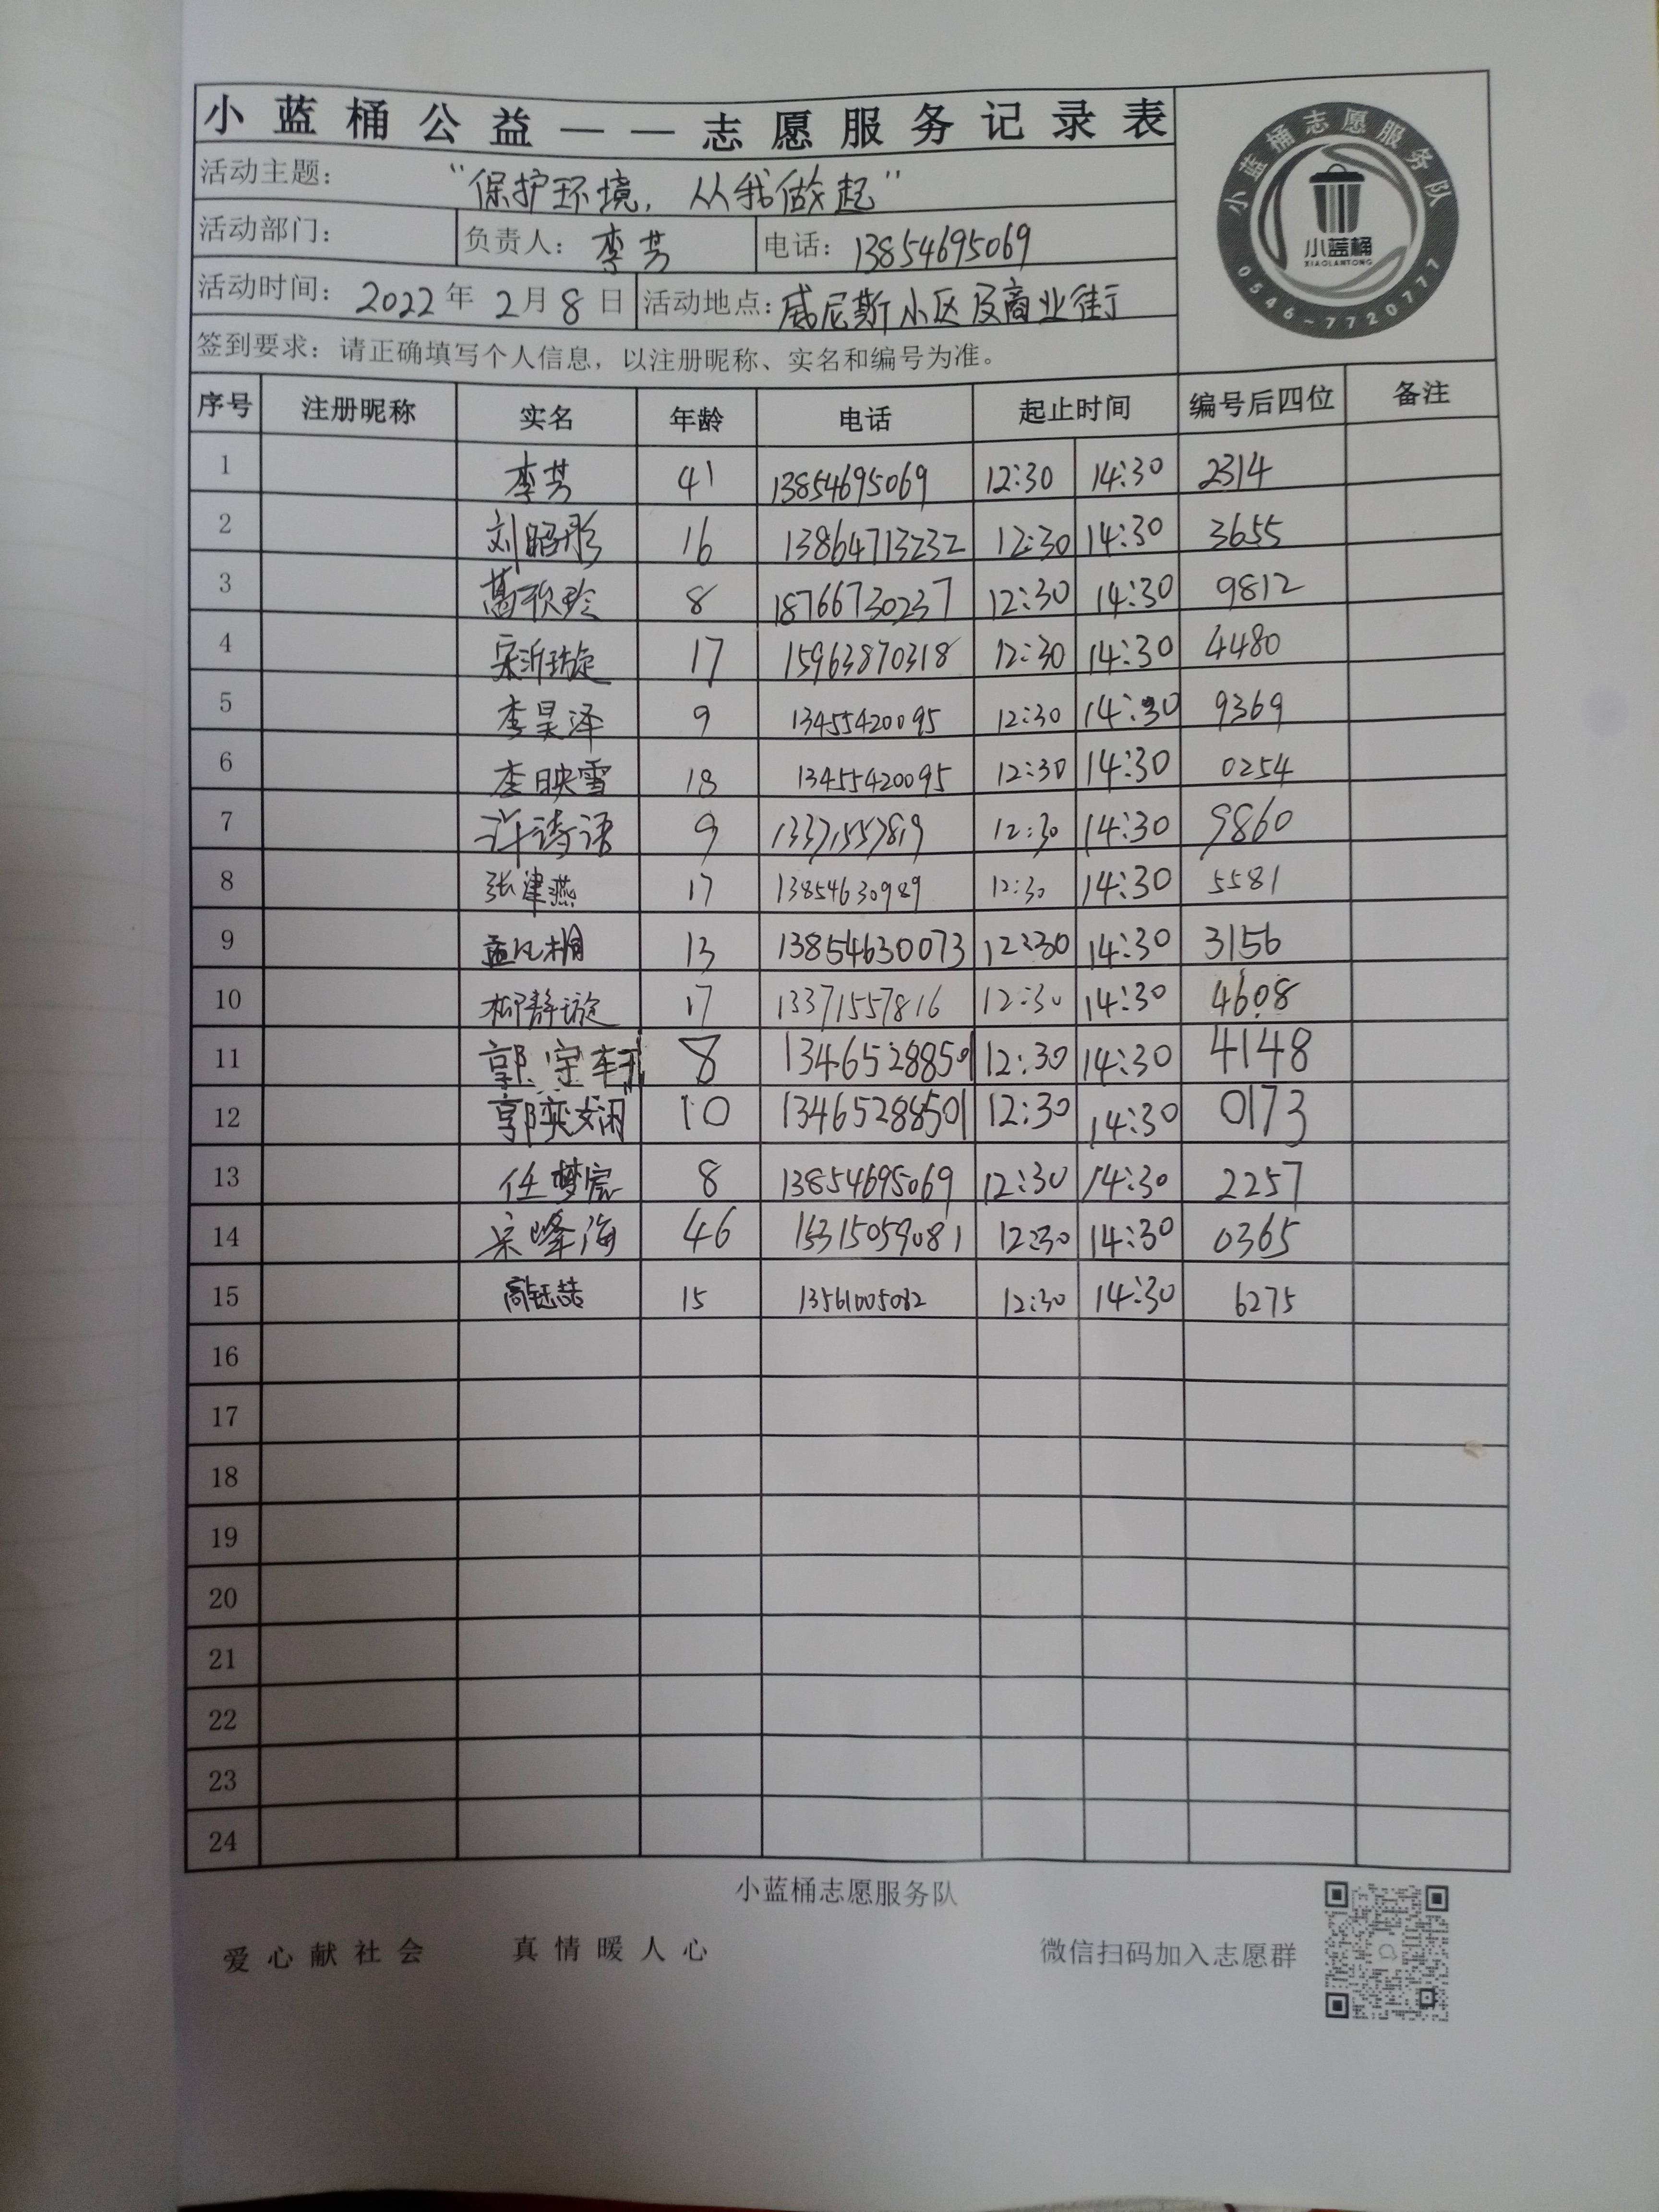 小蓝桶公益——志愿服务记录表
小蓝桶志愿服务队
小蓝桶
XIAOLANTONG
0546-7720777
活动主题： “保护环境，从我做起”
活动部门： 负责人：李芳 电话：13854695069
活动时间：2022年2月8日 活动地点：威尼斯小区及商业街
签到要求：请正确填写个人信息，以注册昵称、实名和编号为准。
序号 注册昵称 实名 年龄 电话 起止时间 编号后四位 备注
1 李芳 41 13854695069 12:30 14:30 2314
2 刘昭彤 16 13864713232 12:30 14:30 3655
3 葛欣玲 8 18766730237 12:30 14:30 9812
4 宋沂璇 17 15963870318 12:30 14:30 4480
5 李昊泽 9 13455420095 12:30 14:30 9369
6 李映雪 18 13455420095 12:30 14:30 0254
7 许诗语 9 13371557819 12:30 14:30 9860
8 张津燕 17 13854630989 12:30 14:30 5581
9 孟凡桐 13 13854630073 12:30 14:30 3156
10 柳静璇 17 13371557816 12:30 14:30 4608
11 郭宇轩 8 13465288501 12:30 14:30 4148
12 郭奕娴 10 13465288501 12:30 14:30 0173
13 任梦宸 8 13854695069 12:30 14:30 2257
14 宋峰海 46 15315059081 12:30 14:30 0365
15 高钰喆 15 13561005082 12:30 14:30 6275
16
17
18
19
20
21
22
23
24
小蓝桶志愿服务队
爱心献社会 真情暖人心 微信扫码加入志愿群